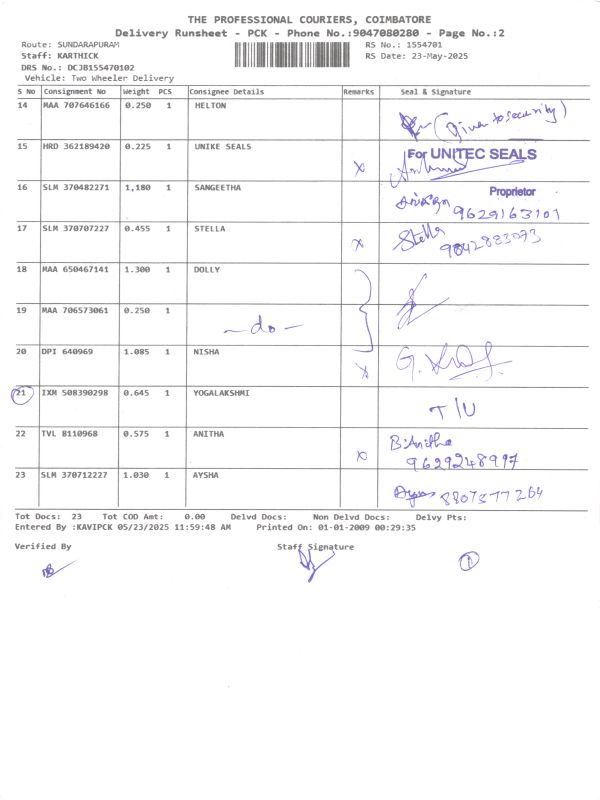 THE PROFESSIONAL COURIERS, COIMBATORE
Delivery Runsheet - PCK - Phone No.:9047080280 - Page No.:2
Route: SUNDARAPURAM RS No.: 1554701
Staff: KARTHICK RS Date: 23-May-2025
DRS No.: DCJB155470102
Vehicle: Two Wheeler Delivery
S No Consignment No Weight PCS Consignee Details Remarks Seal & Signature
14 MAA 707646166 0.250 1 HELTON
(Given to security)
15 HRD 362189420 0.225 1 UNIKE SEALS x For UNITEC SEALS
16 SLM 370482271 1,180 1 SANGEETHA Proprietor
9629163101
17 SLM 370707227 0.455 1 STELLA x Stella
9842823073
18 MAA 650467141 1.300 1 DOLLY
19 MAA 706573061 0.250 1
- do -
20 DPI 640969 1.085 1 NISHA x
21 IXM 508390298 0.645 1 YOGALAKSHMI
T/U
22 TVL 8110968 0.575 1 ANITHA x B.Anitha
9629248997
23 SLM 370712227 1.030 1 AYSHA
8807577264
Tot Docs: 23 Tot COD Amt: 0.00 Delvd Docs: Non Delvd Docs: Delvy Pts:
Entered By :KAVIPCK 05/23/2025 11:59:48 AM Printed On: 01-01-2009 00:29:35
Verified By Staff Signature
1